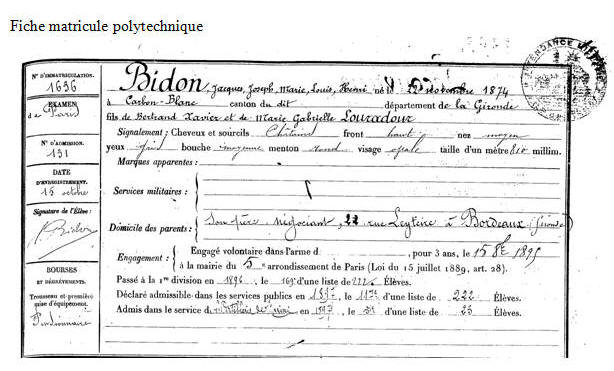 Fiche matricule polytechnique
N° D'IMMATRICULATION.
1636
EXAMEN
de Paris
N° D'ADMISSION.
131
DATE
D'ENREGISTREMENT.
15 octbre
Signature de l'Élève :
Bidon
BOURSES
ET DÉGRÈVEMENTS.
Trousseau et première
mise d'équipement.
Pensionnaire
BIDON, Jacques, Joseph, Marie, Louis, Henri né le 22 novembre 1874
à Carbon-Blanc canton du dit département de la Gironde
fils de Bertrand Xavier et de Marie Gabrielle Louradour
Signalement : Cheveux et sourcils Châtains front haut nez moyen
yeux gris bouche moyenne menton rond visage ovale taille d'un mètre 810 millim.
Marques apparentes :
Services militaires :
Domicile des parents : Son père négociant, 22 rue Leyteire à Bordeaux (Gironde)
Engagement : Engagé volontaire dans l'arme d , pour 3 ans, le 15 8bre 1895
à la mairie du 5e arrondissement de Paris (Loi du 15 juillet 1889, art. 28).
Passé à la 1re division en 1896, le d'une liste de Élèves.
Déclaré admissible dans les services publics en 1897, le d'une liste de 222 Élèves.
Admis dans le service de en 1897, le d'une liste de 23 Élèves.